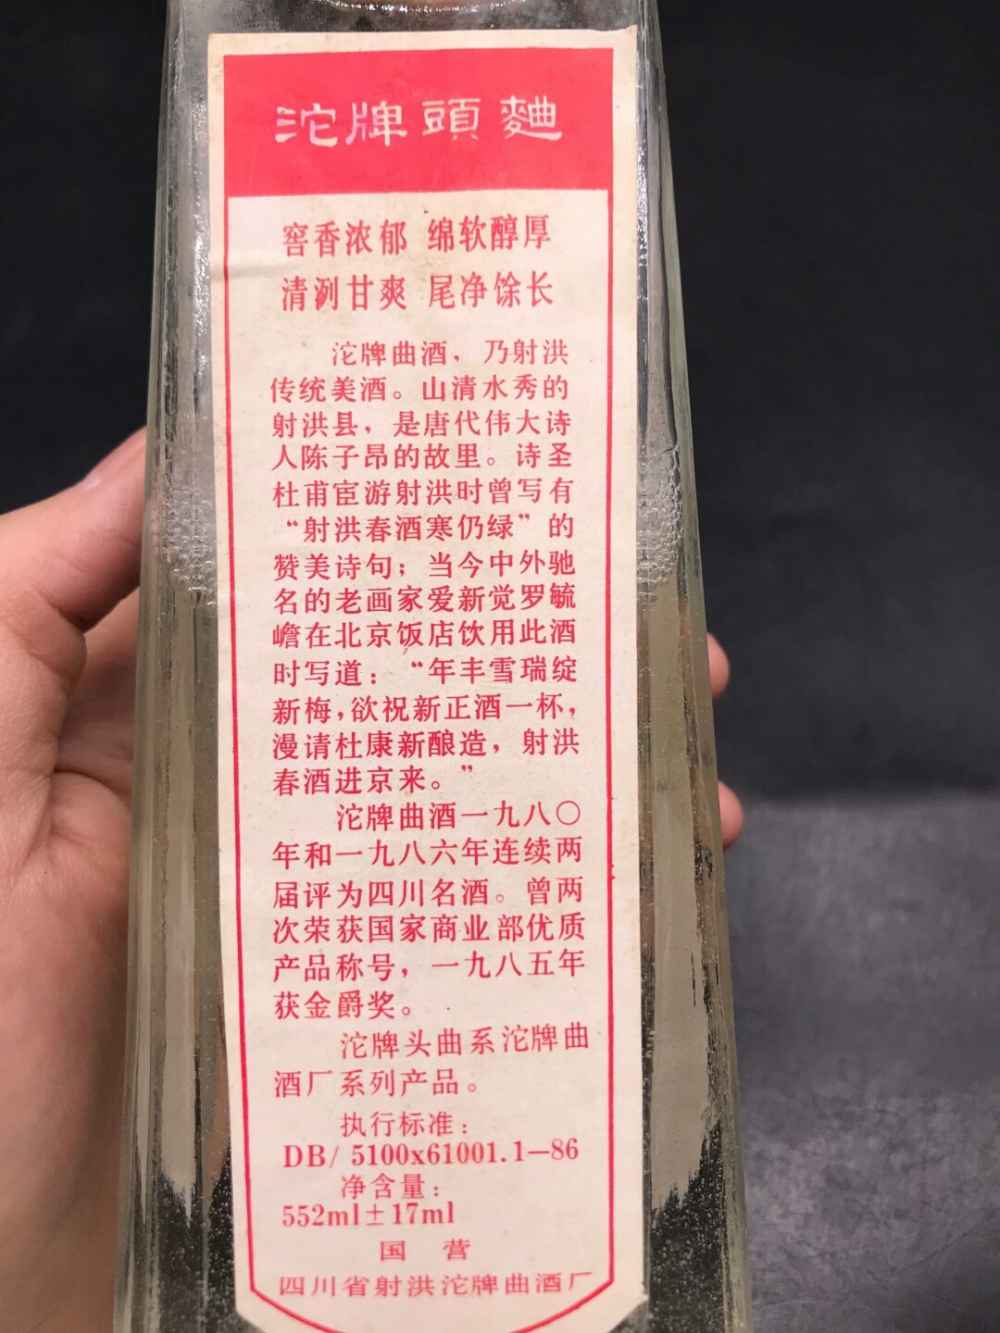 沱牌頭麯
窖香浓郁 绵软醇厚
清洌甘爽 尾净馀长
沱牌曲酒，乃射洪
传统美酒。山清水秀的
射洪县，是唐代伟大诗
人陈子昂的故里。诗圣
杜甫宦游射洪时曾写有
“射洪春酒寒仍绿”的
赞美诗句；当今中外驰
名的老画家爱新觉罗毓
嶦在北京饭店饮用此酒
时写道：“年丰雪瑞绽
新梅，欲祝新正酒一杯，
漫请杜康新酿造，射洪
春酒进京来。”
沱牌曲酒一九八〇
年和一九八六年连续两
届评为四川名酒。曾两
次荣获国家商业部优质
产品称号，一九八五年
获金爵奖。
沱牌头曲系沱牌曲
酒厂系列产品。
执行标准：
DB/ 5100x61001.1—86
净含量：
552ml±17ml
国 营
四川省射洪沱牌曲酒厂